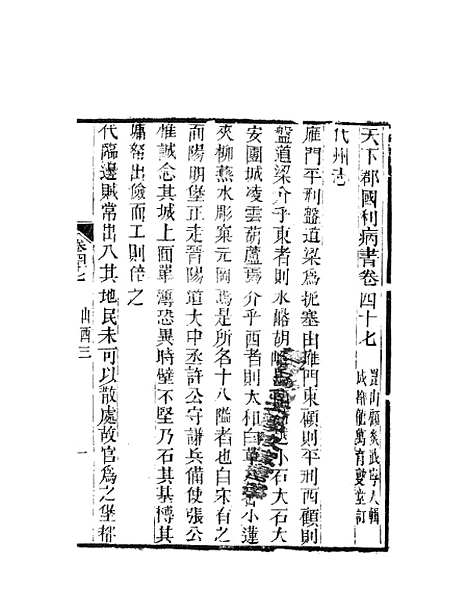 天下郡國利病書卷四十七
崑山顧炎武寧人輯
成都龍萬育燮堂訂
代州志
雁門平刑盤道梁為扼塞由雁門東顧則平刑西顧則
盤道梁介乎東者則水峪胡峪
小石大石大
安團城凌雲葫蘆焉介乎西者則大和白
小蓮
夾柳燕水彫窠元岡焉是所名十八隘者也自宋有之
而陽明堡正走晉陽道大中丞許公守謙兵備使張公
惟誠念其城上面單薄恐異時壁不堅乃石其基塼其
墉帑出儉而工則倍之
代臨邊賊常出入其地民未可以散處故官為之堡
卷四十七
山西三
一